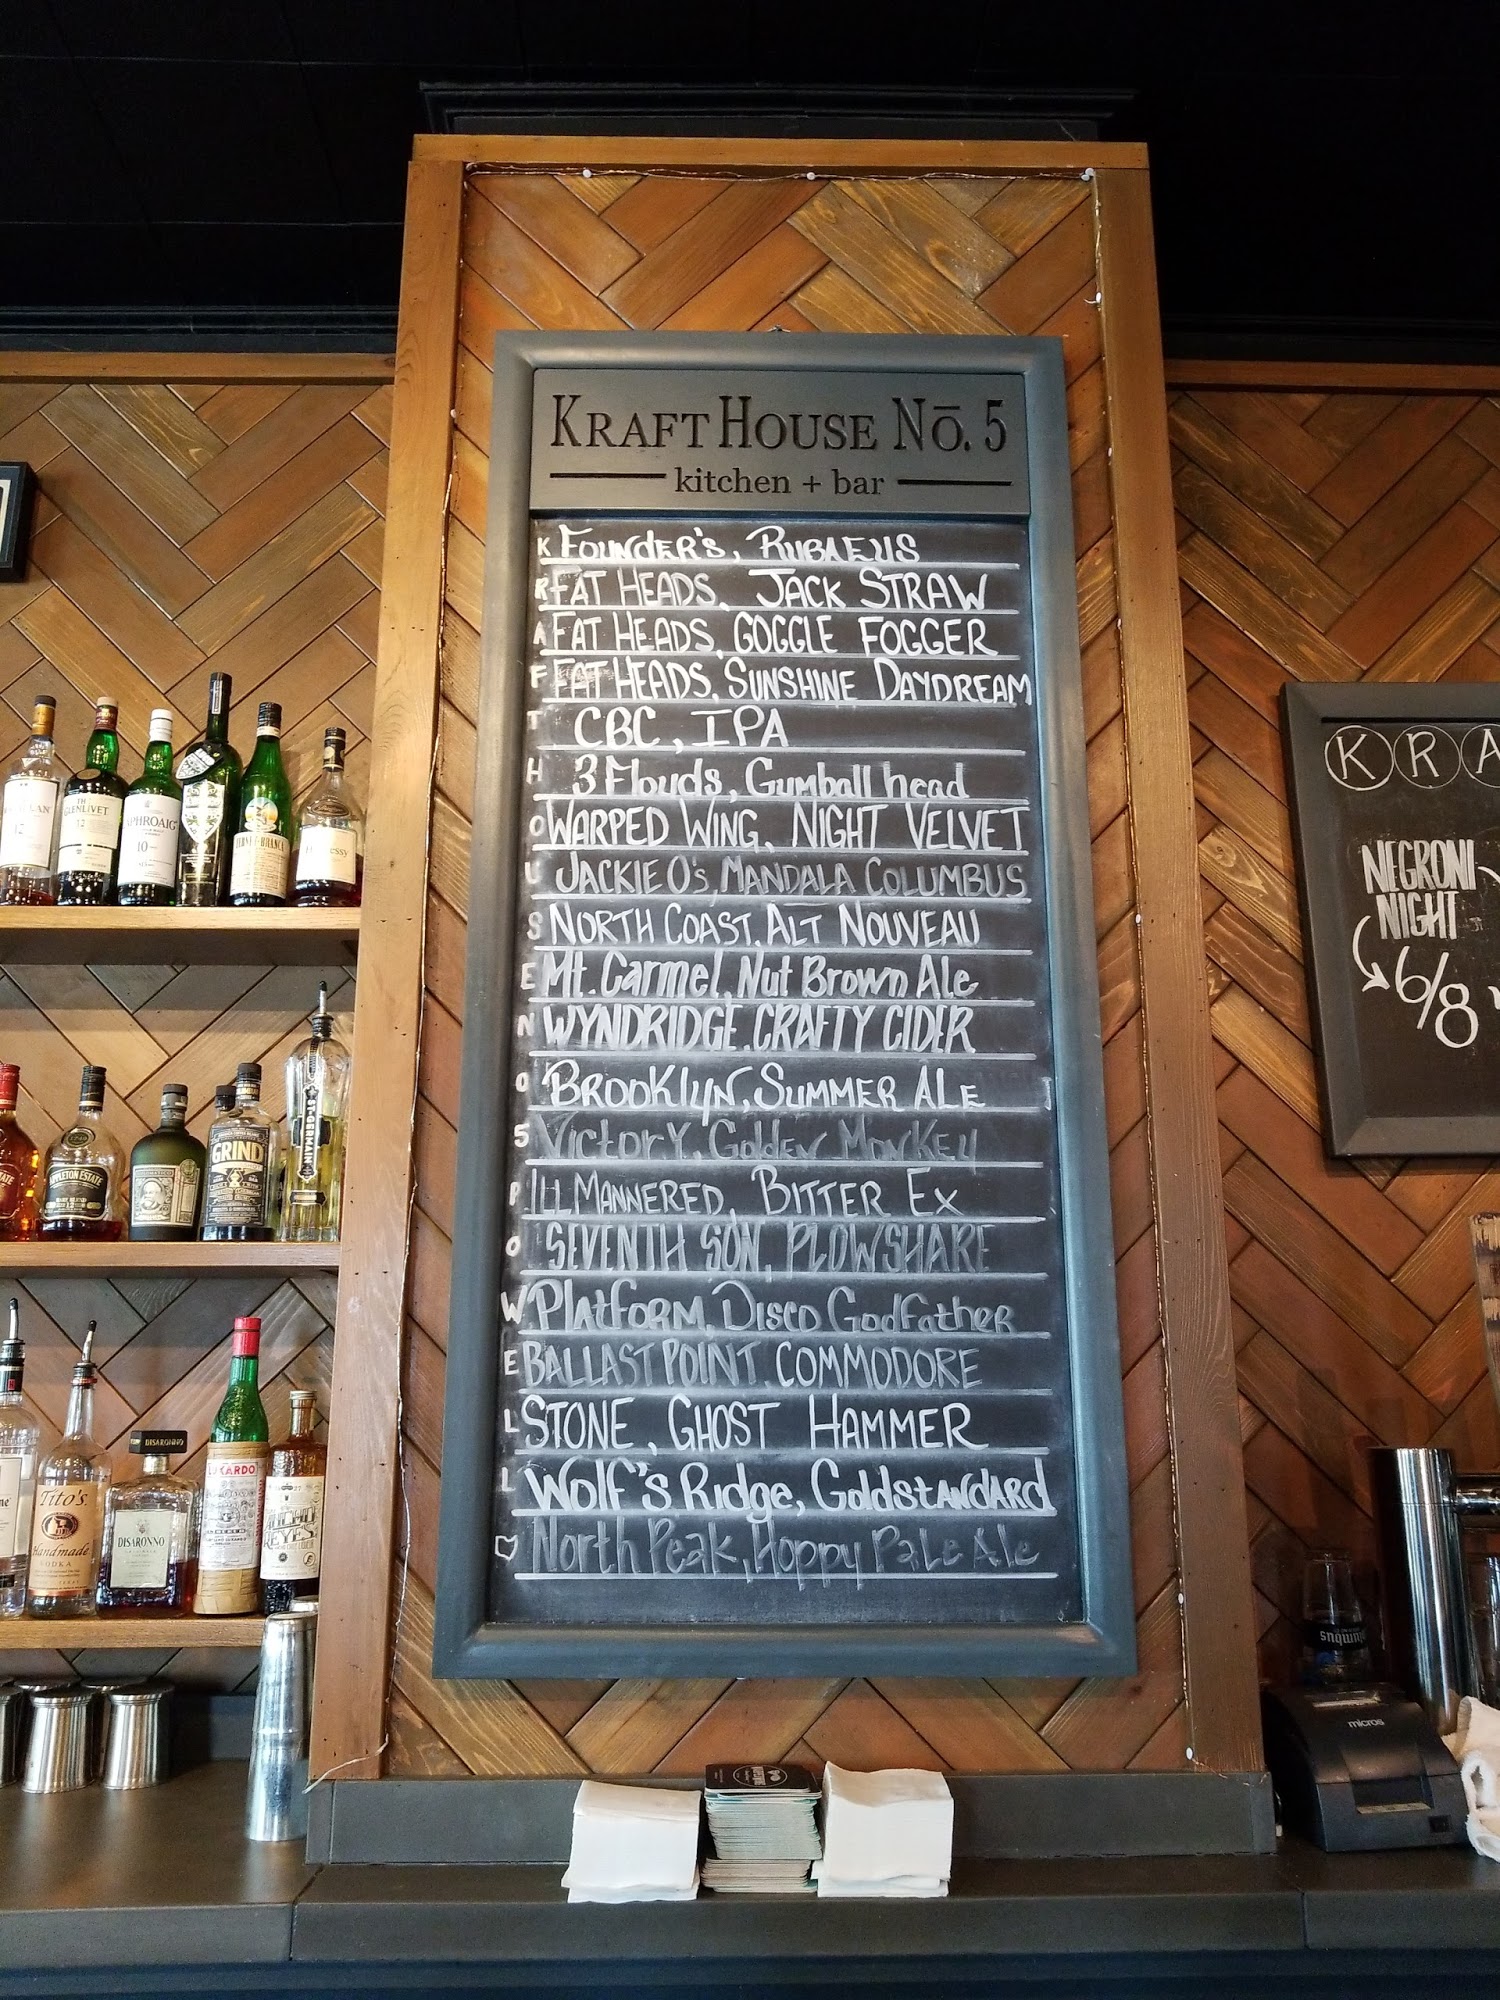 KRAFTHOUSE No. 5
kitchen + bar
K FOUNDER'S, RUBAEUS
R FAT HEADS, JACK STRAW
A FAT HEADS, GOGGLE FOGGER
F FAT HEADS, SUNSHINE DAYDREAM
T CBC, IPA
H 3 Floyds, Gumball head
O WARPED WING, NIGHT VELVET
U JACKIE O's, MANDALA COLUMBUS
S NORTH COAST, ALT NOUVEAU
E Mt. Carmel, Nut Brown Ale
N WYNDRIDGE, CRAFTY CIDER
O BROOKLYN, SUMMER ALE
5 Victory, Golden Monkey
P ILL MANNERED, BITTER EX
O SEVENTH SON, PLOWSHARE
W Platform, Disco Godfather
E BALLAST POINT, COMMODORE
L STONE, GHOST HAMMER
L Wolf's Ridge, GoldstandARD
North Peak, Hoppy Pale Ale
KRA
NEGRONI
NIGHT
6/8
12
THE
GLENLIVET
12
LAPHROAIG
10
FERNET-BRANCA
Hennessy
APPLETON ESTATE
GRIND
ST-GERMAIN
Tito's
Handmade
VODKA
DISARONNO
DISARONNO
LUXARDO
REYES
micros